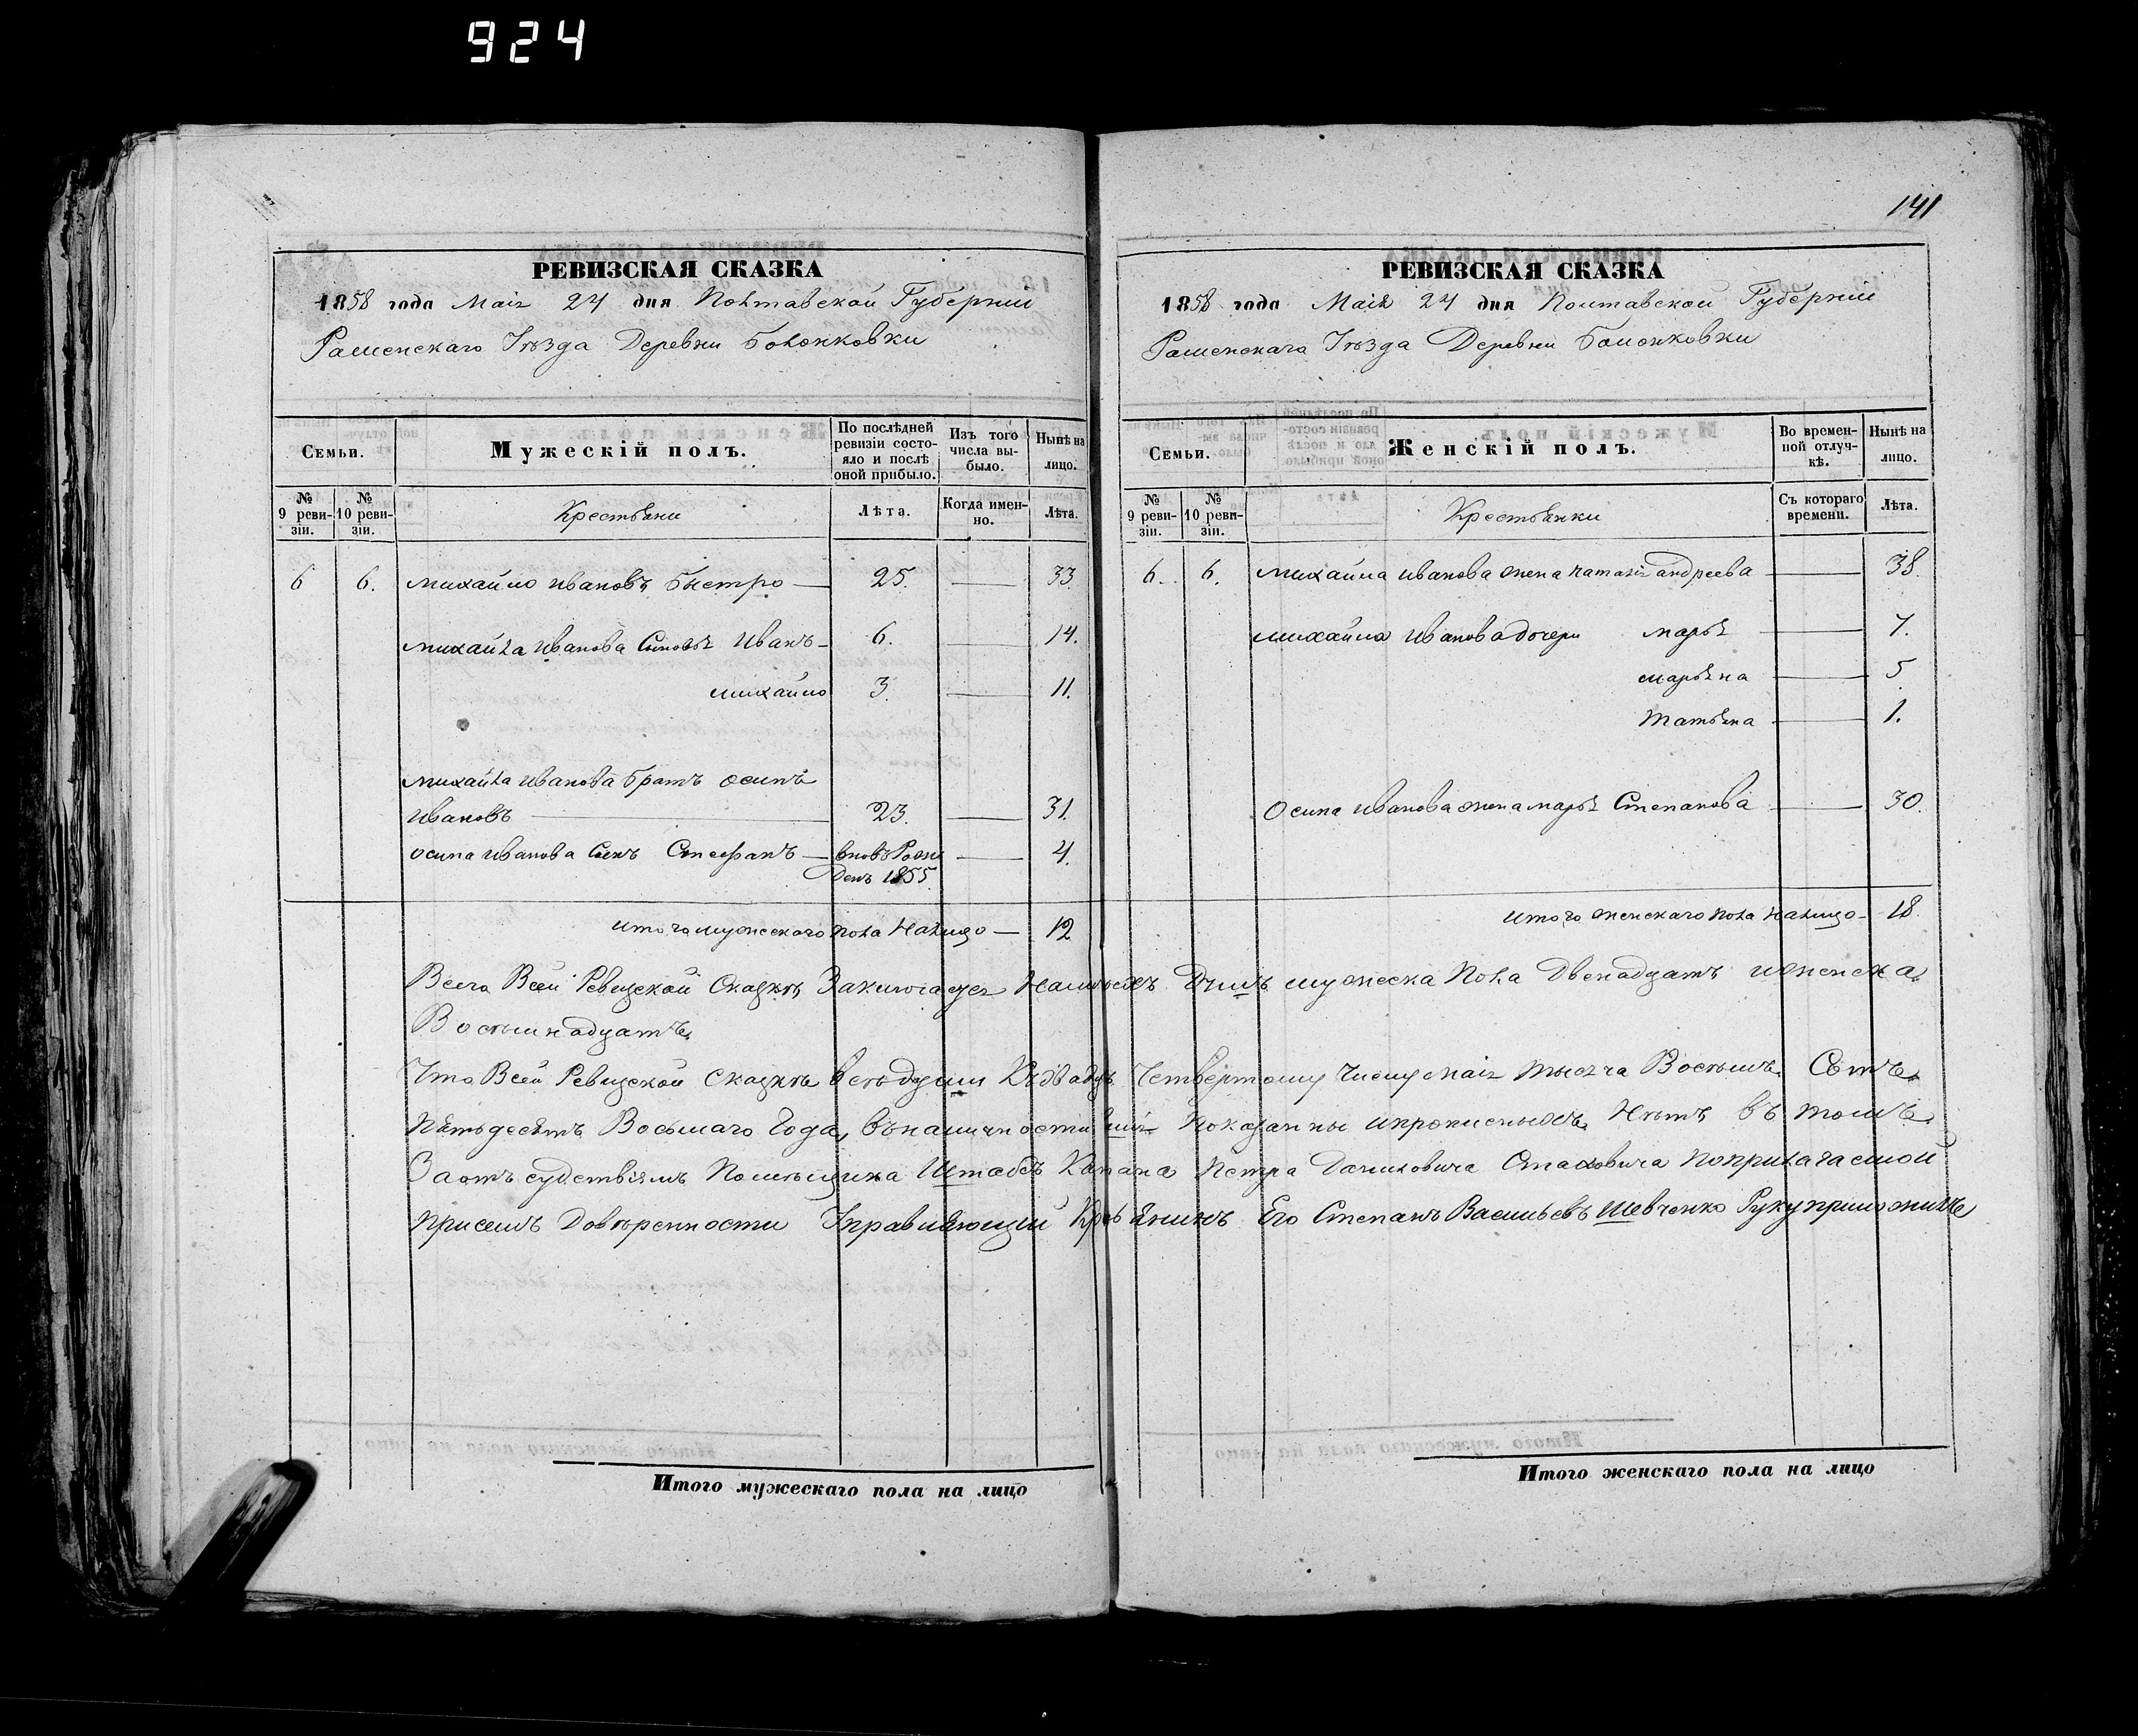 924
141
РЕВИЗСКАЯ СКАЗКА
1858 года Маія 24 дня Полтавской Губерніи
Деревни
Семьи.
Мужескій полъ.
По послѣдней ревизіи состояло и послѣ оной прибыло.
Изъ того числа выбыло.
Нынѣ на лицо.
№ 9 ревизіи.
№ 10 ревизіи.
Крестьяни
Лѣта.
Когда именно.
Лѣта.
6 6. михайло ивановъ Быстро — 25. — 33.
михайла иванова Сыновья Иванъ — 6. — 14.
михайло 3. — 11.
михайла иванова братъ осипъ
ивановъ — 23. — 31.
осипа иванова Сынъ Стефанъ — вновь Рож
денъ 1855. — 4.
итого мужескаго пола налицо — 12
РЕВИЗСКАЯ СКАЗКА
1858 года Маія 24 дня Полтавской Губерніи
Деревни
Семьи.
Женскій полъ.
Во временной отлучкѣ.
Нынѣ на лицо.
№ 9 ревизіи.
№ 10 ревизіи.
Крестьянки
Съ котораго времени.
Лѣта.
6. 6. михайла иванова жена андреева — 38.
михайла иванова дочери марья — 7.
марьяна — 5
татьяна — 1.
Осипа иванова жена марья Степанова — 30.
итого женскаго пола налицо — 18.
Всего Всей Ревизской Сказкѣ мужеска пола Двенадцать и женска
Восемнадцать
Что Всей Ревизской Сказкѣ всѣ души Четвертому Числу маія тысяча Восемъ Сотъ
пятьдесятъ Восьмаго Года, въ наличности показанны и прописныхъ Нѣтъ въ томъ
За отъсудствіямъ Помѣщика Штабсъ Петра Даниловича Стаховича по прилагаемой
присемъ Довѣренности Управляющий Его Степанъ Васильевъ Шевченко Руку приложилъ
Итого мужескаго пола на лицо
Итого женскаго пола на лицо